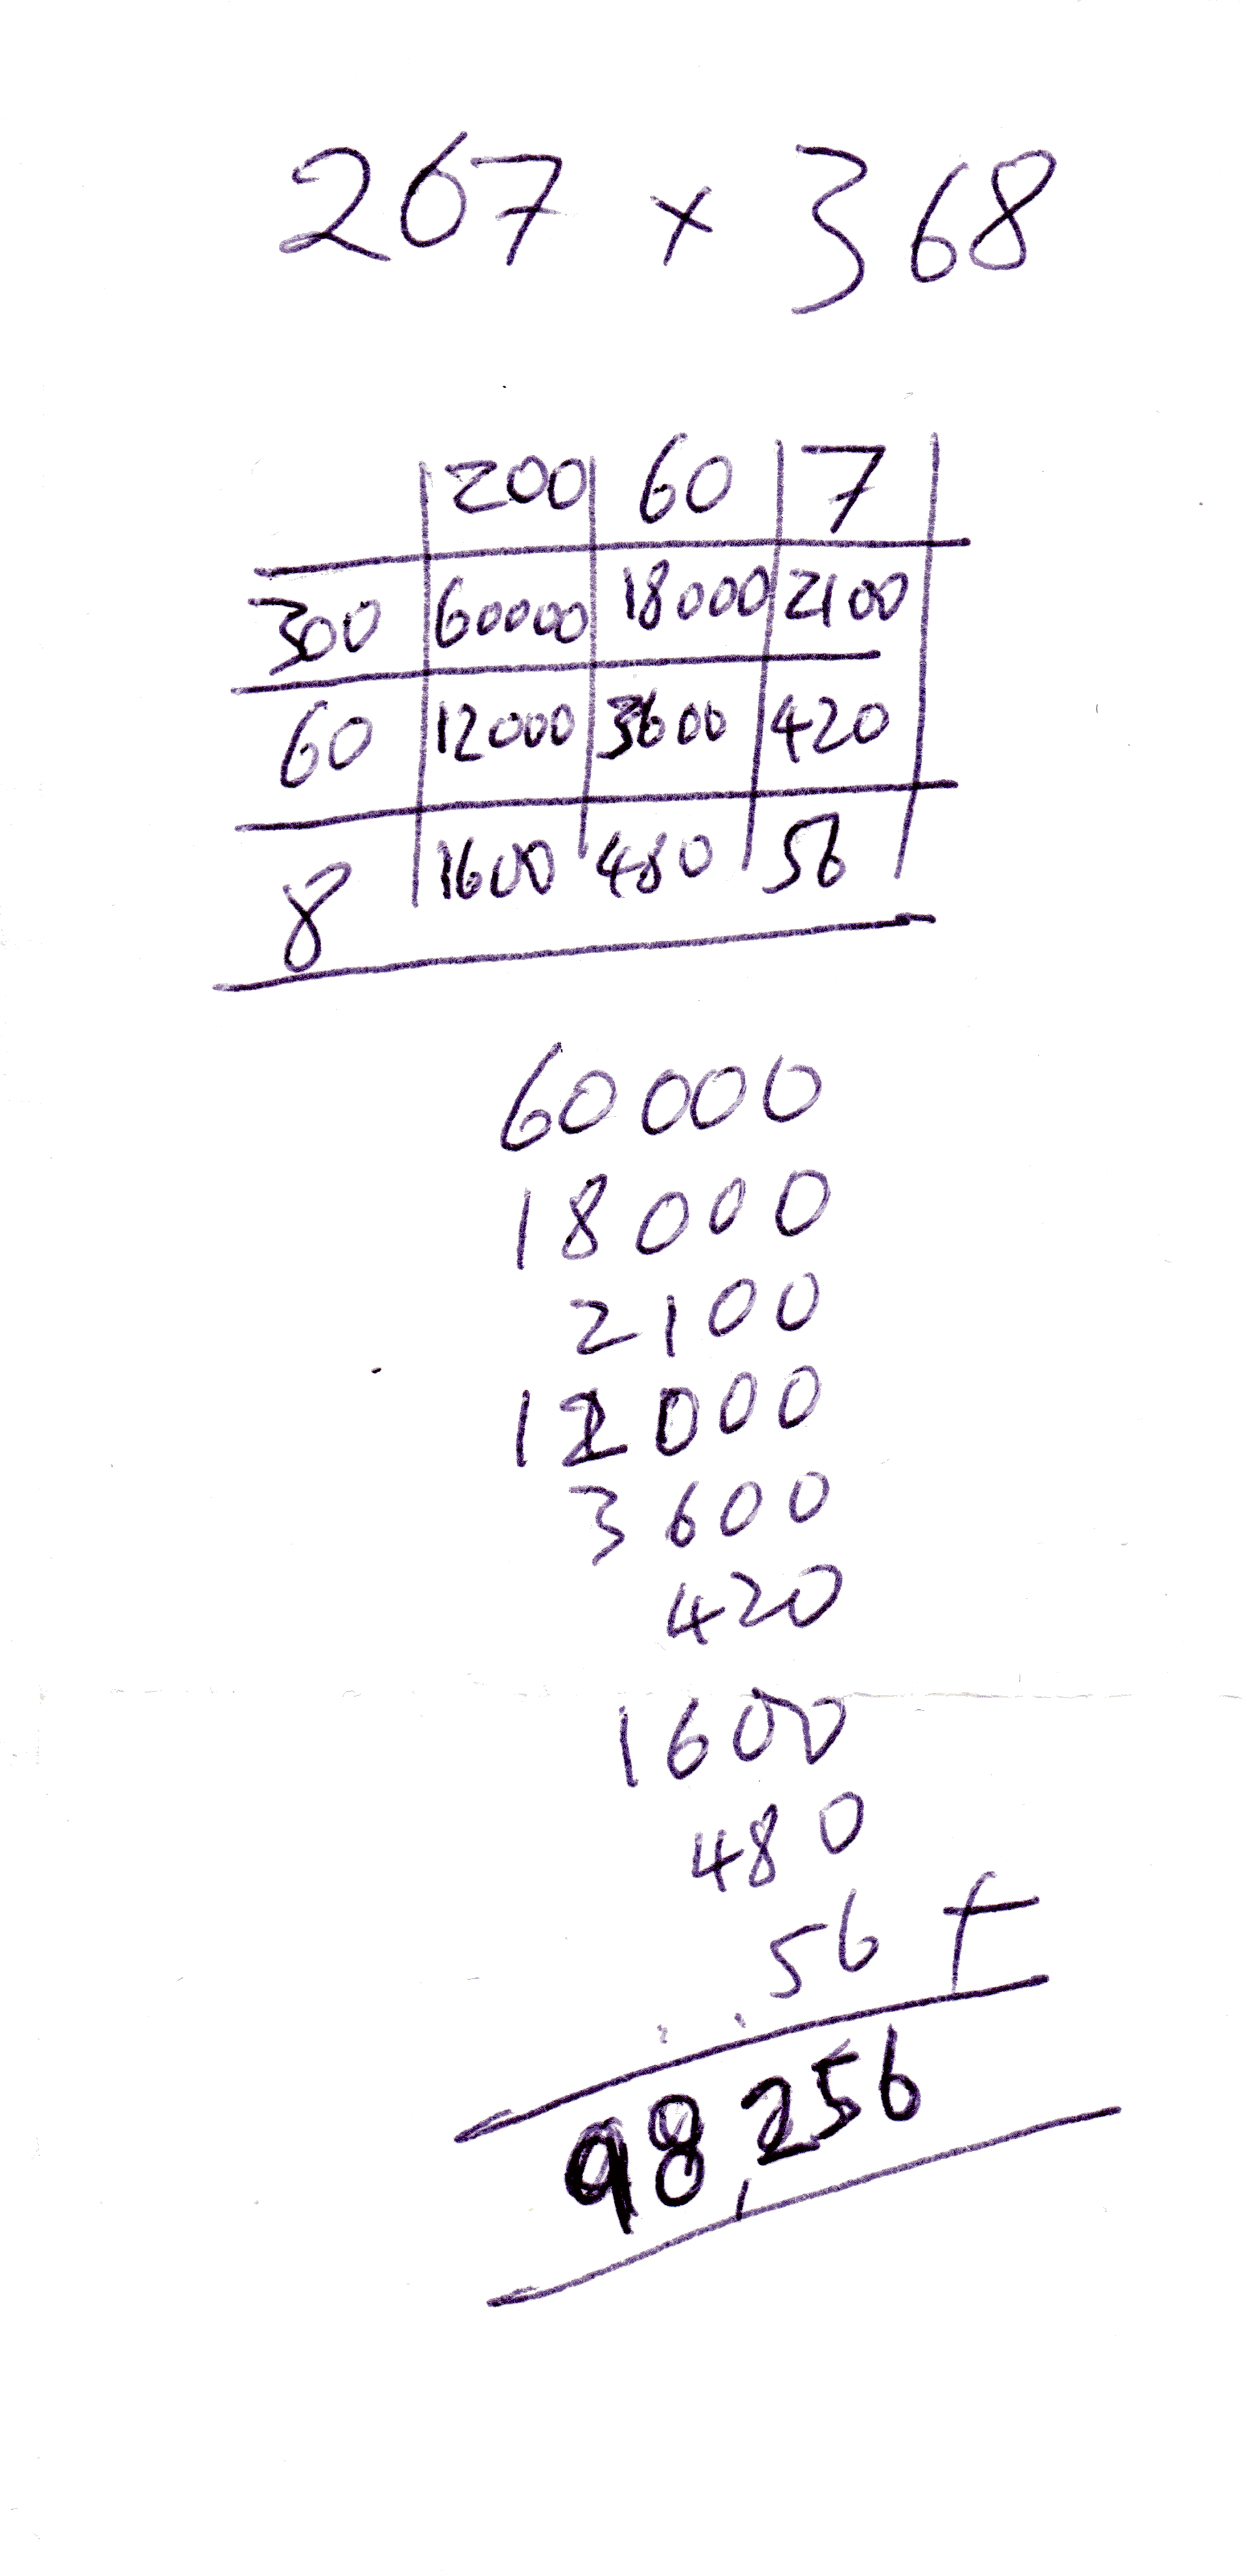 267 × 368
200 60 7
300 60000 18000 2100
60 12000 3600 420
8 1600 480 56
60000
18000
2100
12000
3600
420
1600
480
56 +
98,256